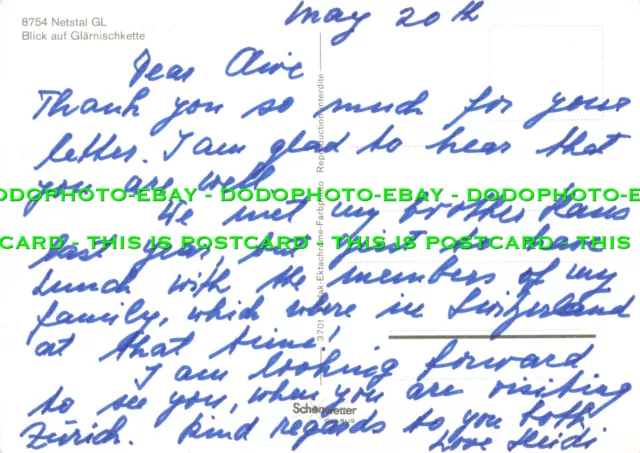 8754 Netstal GL
Blick auf Glärnischkette
May 20th
Dear
Thank you so much for your
letter. I am glad to hear that
you are well
DODOPHOTO-EBAY - DODOPHOTO-EBAY - DODOPHOTO-EBAY - DODOPHOTO-EBAY
We met my brother Hans
CARD - THIS IS POSTCARD - THIS IS POSTCARD - THIS IS POSTCARD - THIS
last year, but just to have
Lunch with the members of my
family, which where in Switzerland
at that time!
I am looking forward
to see you, when you are visiting
Zürich. Kind regards to you both
Love Heidi
Reproduction interdite
Kodak-Ektachrome-Farbphoto
3701
Schönwetter
GLARUS